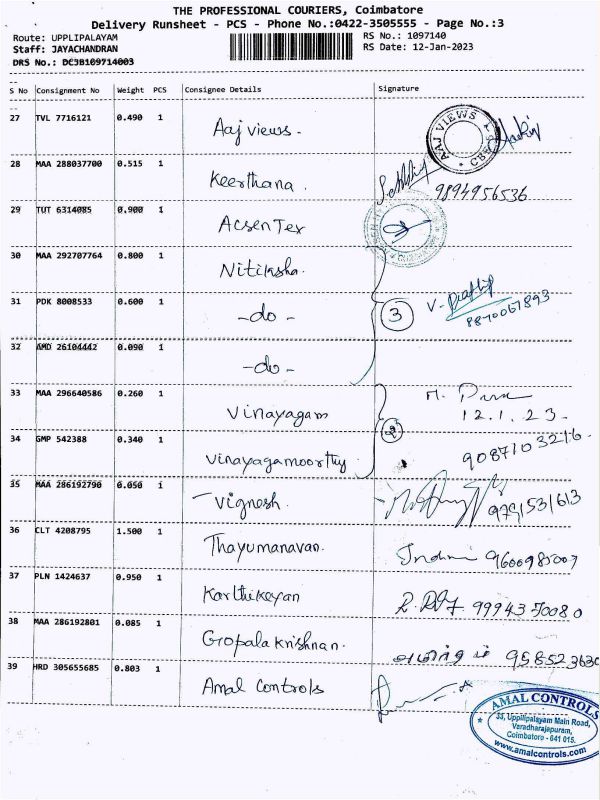 THE PROFESSIONAL COURIERS, Coimbatore
Delivery Runsheet - PCS - Phone No.:0422-3505555 - Page No.:3
Route: UPPLIPALAYAM RS No.: 1097140
Staff: JAYACHANDRAN RS Date: 12-Jan-2023
DRS No.: DCJB109714003
S No Consignment No Weight PCS Consignee Details Signature
27 TVL 7716121 0.490 1 Aaj views. AAJ VIEWS
28 MAA 288037700 0.515 1 Keerthana. 9894956536
29 TUT 6314085 0.900 1 AcsenTex
30 MAA 292707764 0.800 1 Nitiksha.
31 PDK 8008533 0.600 1 -do- 3 8870067893
32 AMD 26104442 0.090 1 -do-
33 MAA 296640586 0.260 1 Vinayagam 12.1.23-
34 GMP 542388 0.340 1 Vinayagamoorthy 2 9087103216.
35 MAA 286192790 0.050 1 Vignesh. 9791531613
36 CLT 4208795 1.500 1 Thayumanavan. 9600985007
37 PLN 1424637 0.950 1 Karthikeyan 9994370080
38 MAA 286192801 0.085 1 Gopalakrishnan.
39 HRD 305655685 0.803 1 Amal Controls
AMAL CONTROLS
33, Uppilipalayam Main Road,
Varadharajapuram,
Coimbatore - 641 015.
www.amalcontrols.com